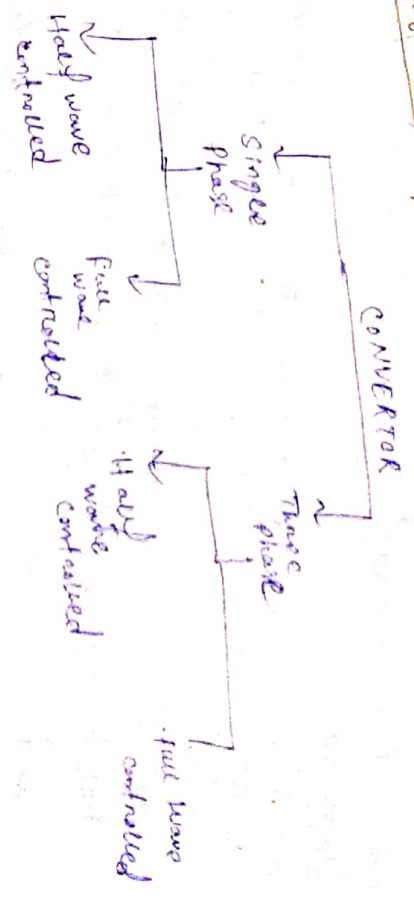 CONVERTOR
Single
Phase
Three
phase
Half wave
controlled
Full
wave
controlled
Half
wave
controlled
full wave
controlled